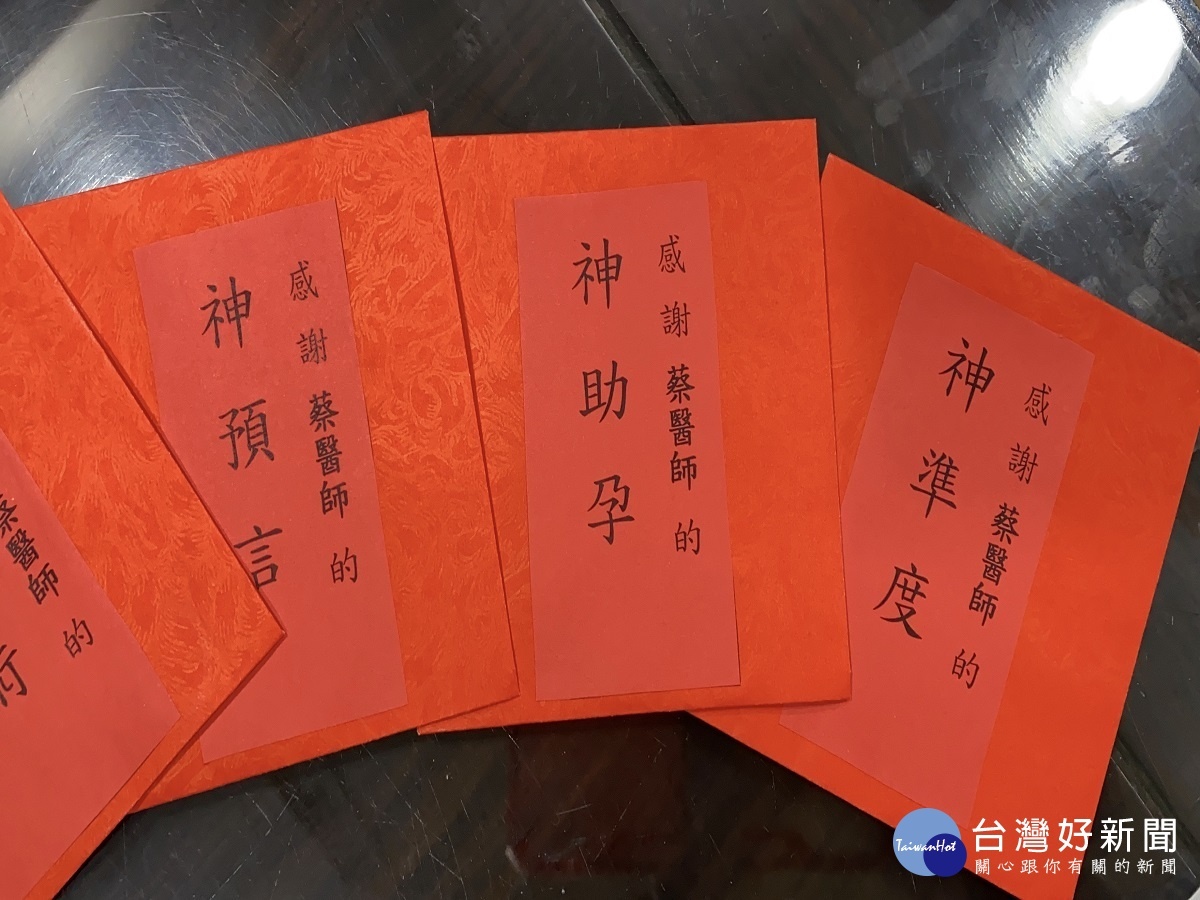 感謝 蔡醫師 的
神準度
感謝 蔡醫師 的
神助孕
感謝 蔡醫師 的
神預言
蔡醫師 的
TaiwanHot
台灣好新聞
關心跟你有關的新聞